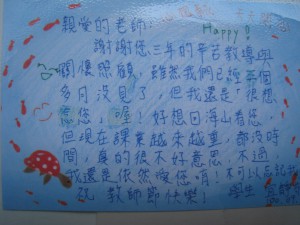 Happy
親愛的老師:
謝謝您三年的辛苦教導與
關懷照顧,雖然我們已經兩個
多月沒見了,但我還是很想
念您,喔!好想回浮山看您,
但現在課業越來越重,都沒時
間,真的很不好意思,不過,
我還是依然愛您唷,不可以忘記
祝 教師節快樂! 學生